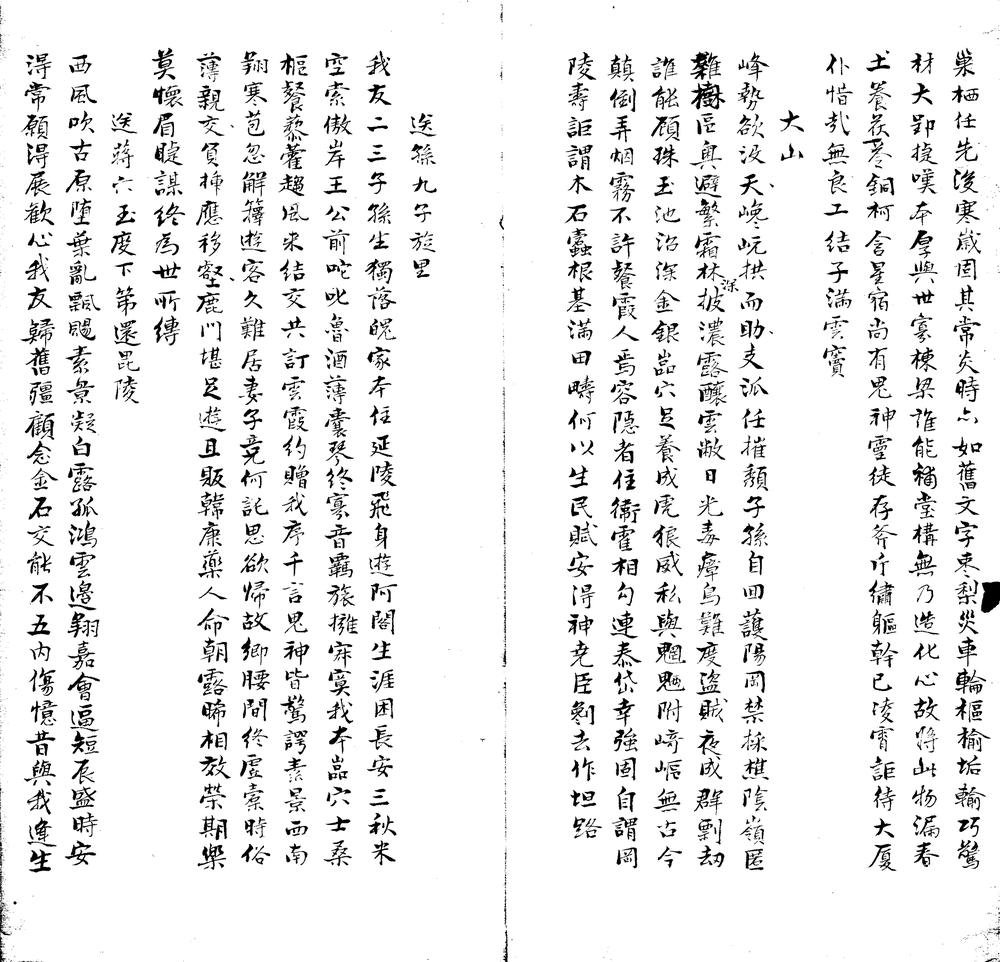 巢栖任先後寒歲固其常炎時亦如舊文字東梨災車輪樞榆垢輸巧驚
材大郢捉嘆本厚與世寡棟梁誰能補堂構無乃造化心故將此物漏春
土養茯苓銅柯含星宿尚有鬼神靈徒存斧斤繡軀幹已凌霄詎待大厦
仆惜哉無良工結子滿雲竇
大山
峰勢欲沒天巉岏拱而助支派任摧頹子孫自回護陽岡禁採樵陰嶺匿
雜樹區奧避繁霜林深披濃露釀雲敝日光毒瘴鳥難度盜賊夜成群剽劫
誰能顧珠玉池沼深金銀嵓穴足養成虎狼威私與魍魎附崎嶇無古今
顛倒弄烟霧不許餐霞人焉容隱者住衡霍相勾連泰岱幸強固自謂岡
陵壽詎謂木石蠹根基滿田疇何以生民賦安得神堯臣剷去作坦路
送孫九子旋里
我友二三子孫生獨落魄家本住延陵飛身遊阿閣生涯困長安三秋米
空索傲岸王公前咤叱魯酒薄囊琴終寡音羈旅擁寂寞我本嵓穴士桑
樞餐藜藿趨風來結交共訂雲霞約贈我序千言鬼神皆驚諤素景西南
翔寒苞忽解籜遊客久難居妻子竟何託思欲帰故鄉腰間終虛橐時俗
薄親交負揷應移壑鹿門堪足遊且販韓康藥人命朝露晞相效榮期樂
莫懷眉睫謀終為世所縛
送蔣六玉度下第還毘陵
西風吹古原墮葉亂飄颺素景凝白露孤鴻雲邊翔嘉會逼短辰盛時安
淂常願淂展歡心我友歸舊疆顧念金石交能不五內傷憶昔與我逢生